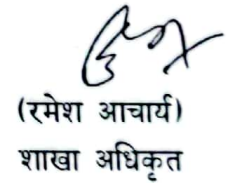 (रमेश आचार्य)
शाखा अधिकृत